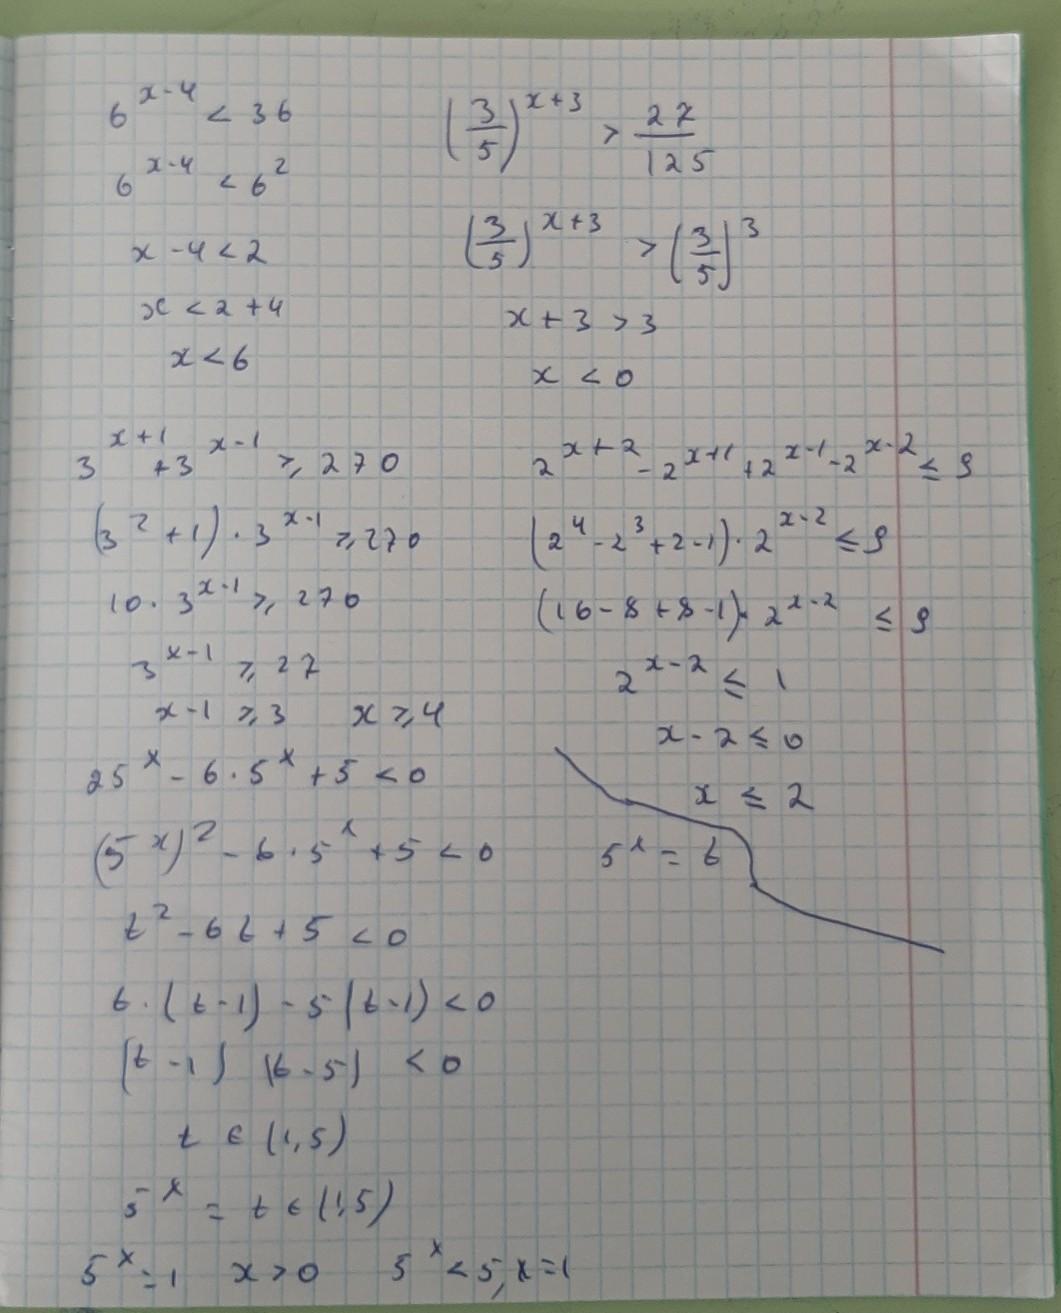 6^{x-4} < 36
6^{x-4} < 6^2
x - 4 < 2
x < 2 + 4
x < 6
(3/5)^{x+3} > 27/125
(3/5)^{x+3} > (3/5)^3
x + 3 > 3
x < 0
3^{x+1} + 3^{x-1} ⩾ 270
(3^2 + 1) · 3^{x-1} ⩾ 270
10 · 3^{x-1} ⩾ 270
3^{x-1} ⩾ 27
x - 1 ⩾ 3 x ⩾ 4
2^{x+2} - 2^{x+1} + 2^{x-1} - 2^{x-2} ≤ 9
(2^4 - 2^3 + 2 - 1) · 2^{x-2} ≤ 9
(16 - 8 + 8 - 1) · 2^{x-2} ≤ 9
2^{x-2} ≤ 1
x - 2 ≤ 0
x ≤ 2
25^x - 6 · 5^x + 5 < 0
(5^x)^2 - 6 · 5^x + 5 < 0
5^x = t
t^2 - 6t + 5 < 0
t · (t - 1) - 5(t - 1) < 0
(t - 1) (t - 5) < 0
t ∈ (1, 5)
5^x = t ∈ (1, 5)
5^x = 1 x > 0 5^x < 5, x = 1